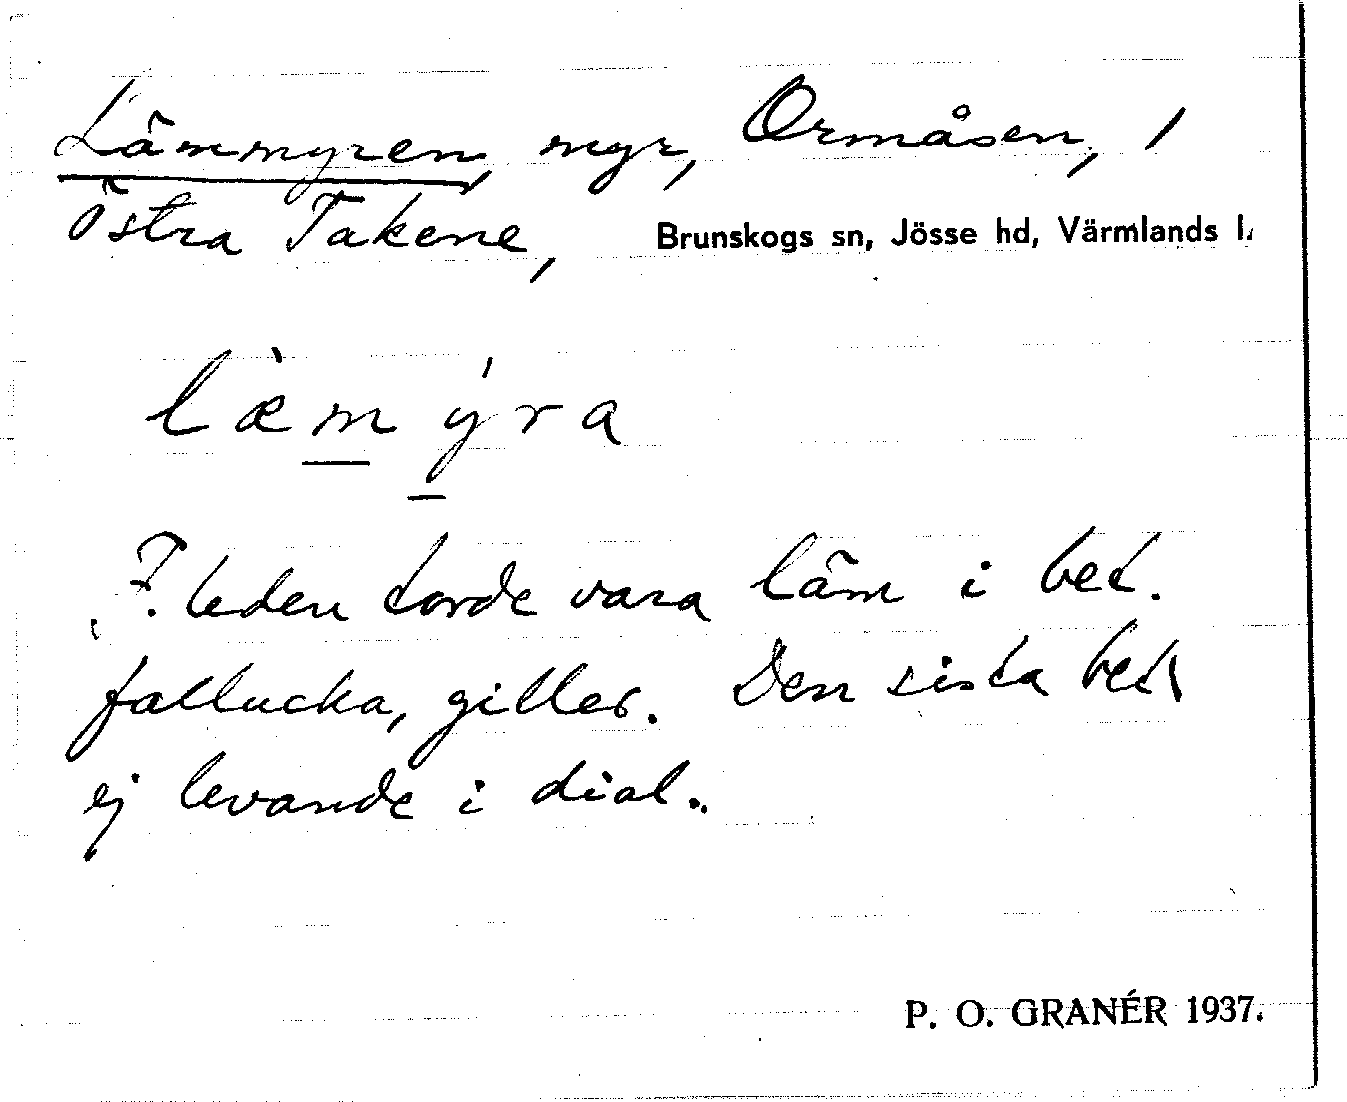 Lämmyren, myr, Ormåsen, /
Östra Takene, Brunskogs sn, Jösse hd, Värmlands l.
læ̀m ýra
F. leden torde vara läm i bet.
fallucka, giller. Den sista bet.
ej levande i dial..
P. O. GRANÉR 1937.